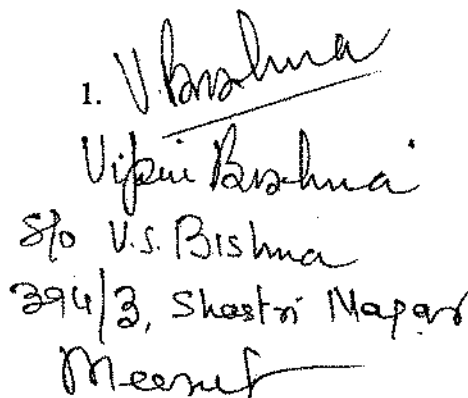 1. VBishna
Vipin Bishna
S/o V.S. Bishna
394/3, Shastri Nagar
Meerut